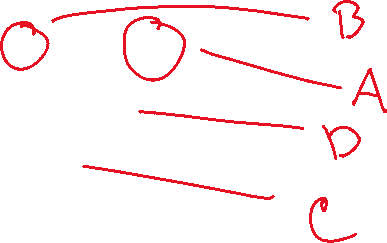 B
A
D
C